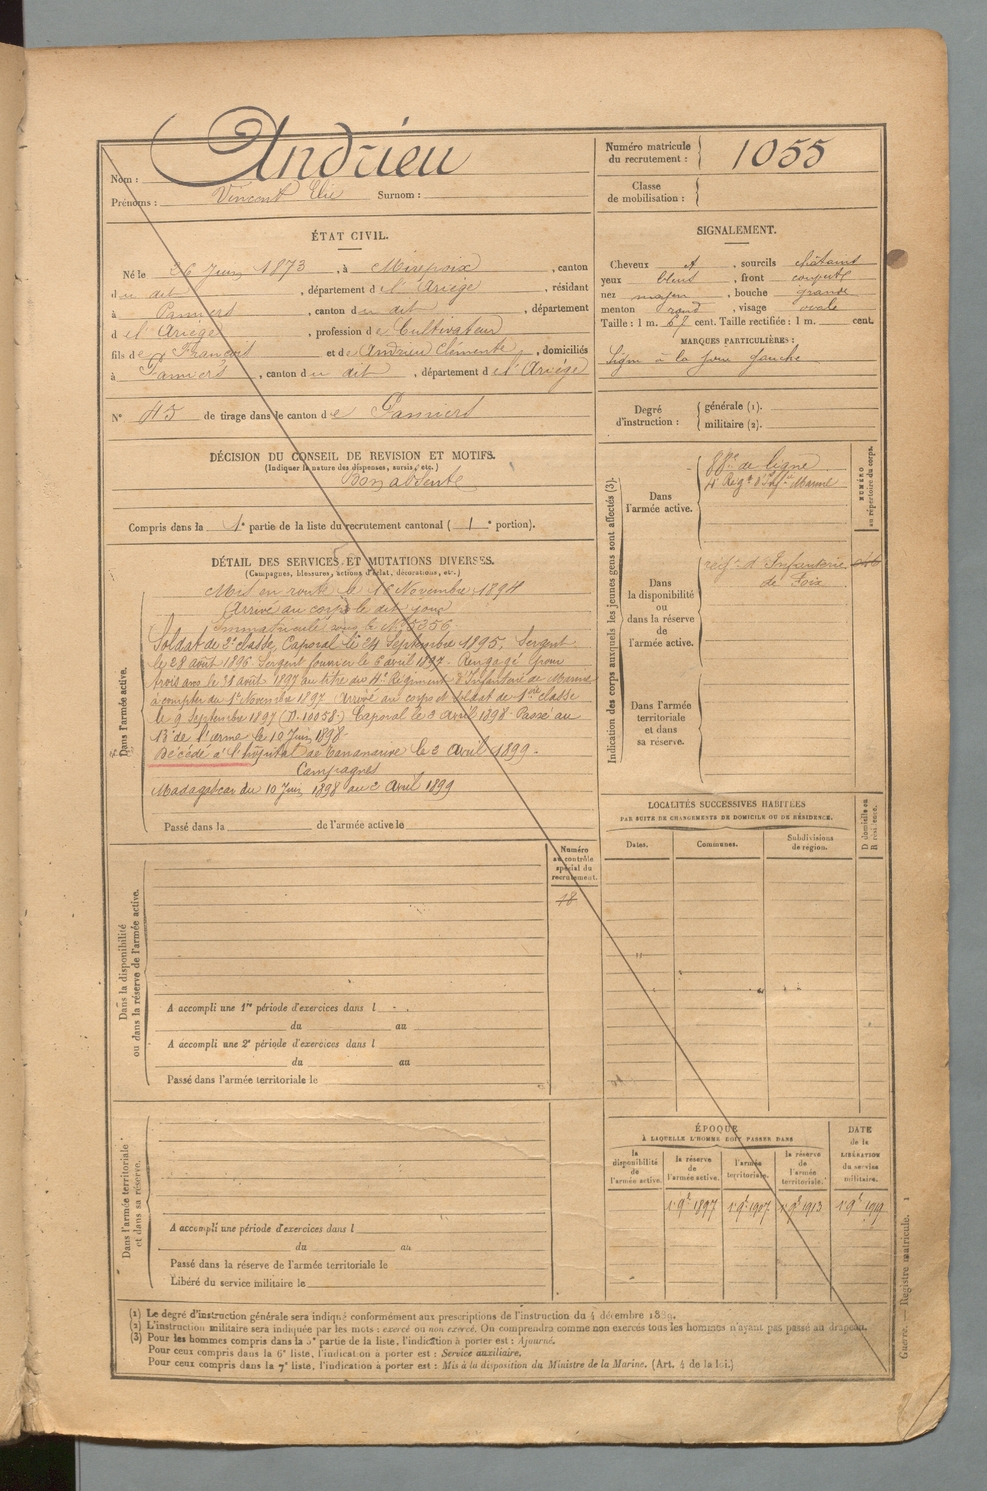 Nom : Andrieu
Prénoms : Vincent Elie Surnom :
Numéro matricule du recrutement : 1055
Classe de mobilisation :
ÉTAT CIVIL.
Né le 26 Juin 1873, à Mirepoix, canton
du dit, département de l'Ariège, résidant
à Pamiers, canton du dit, département
de l'Ariège, profession de Cultivateur
fils de François et de Andrieu Clémente, domiciliés
à Pamiers, canton du dit, département de l'Ariège
N° 45 de tirage dans le canton de Pamiers
SIGNALEMENT.
Cheveux et, sourcils châtains
yeux bleus, front couvert
nez moyen, bouche grande
menton rond, visage ovale
Taille : 1 m. 67 cent. Taille rectifiée : 1 m. cent.
MARQUES PARTICULIÈRES :
Signe à la joue gauche
Degré d'instruction : générale (1).
militaire (2).
DÉCISION DU CONSEIL DE REVISION ET MOTIFS.
(Indiquer la nature des dispenses, sursis, etc.)
Bon absent
Compris dans la 1e partie de la liste du recrutement cantonal ( 1e portion).
DÉTAIL DES SERVICES ET MUTATIONS DIVERSES.
(Campagnes, blessures, actions d'éclat, décorations, etc.)
Dans l'armée active.
Mis en route le 16 Novembre 1894
Arrivé au corps le dit jour
Immatriculé sous le N° 5356
Soldat de 2e classe, Caporal le 24 Septembre 1895, Sergent
le 28 août 1896. Sergent fourrier le 6 avril 1897. Rengagé pour
trois ans le 31 août 1897 au titre du 4e Régiment d'Infanterie de Marine
à compter du 1er Novembre 1897. Arrivé au corps et soldat de 1ère classe
le 9 Septembre 1897 (N. 10058) Caporal le 3 avril 1898. Passé au
13e de l'arme le 10 Juin 1898.
Décédé à l'hôpital de Tananarive le 2 avril 1899.
Campagnes
Madagascar du 10 Juin 1898 au 2 avril 1899
Passé dans la de l'armée active le
Indication des corps auxquels les jeunes gens sont affectés (3).
NUMÉRO au répertoire du corps.
Dans l'armée active.
88e de ligne
4e Régt d'Infie Marine
Dans la disponibilité ou dans la réserve de l'armée active.
régt d'Infanterie
de Foix
Dans l'armée territoriale et dans sa réserve.
LOCALITÉS SUCCESSIVES HABITÉES
PAR SUITE DE CHANGEMENTS DE DOMICILE OU DE RÉSIDENCE.
Dates. Communes. Subdivisions de région. D domicile ou R résidence.
Numéro au contrôle spécial du recrutement.
18
Dans la disponibilité ou dans la réserve de l'armée active.
A accompli une 1re période d'exercices dans l
du au
A accompli une 2e période d'exercices dans l
du au
Passé dans l'armée territoriale le
Dans l'armée territoriale et dans sa réserve.
A accompli une période d'exercices dans l
du au
Passé dans la réserve de l'armée territoriale le
Libéré du service militaire le
ÉPOQUE
À LAQUELLE L'HOMME DOIT PASSER DANS
la disponibilité de l'armée active. la réserve de l'armée active. l'armée territoriale. la réserve de l'armée territoriale.
DATE de la LIBÉRATION du service militaire.
1 9e 1897 1 9e 1907 1 9e 1913 1 9e 1919
(1) Le degré d'instruction générale sera indiqué conformément aux prescriptions de l'instruction du 4 décembre 1889.
(2) L'instruction militaire sera indiquée par les mots : exercé ou non exercé. On comprendra comme non exercés tous les hommes n'ayant pas passé au drapeau.
(3) Pour les hommes compris dans la 5e partie de la liste, l'indication à porter est : Ajourné.
Pour ceux compris dans la 6e liste, l'indication à porter est : Service auxiliaire.
Pour ceux compris dans la 7e liste, l'indication à porter est : Mis à la disposition du Ministre de la Marine. (Art. 4 de la loi.)
Guerre. — Registre matricule. 1